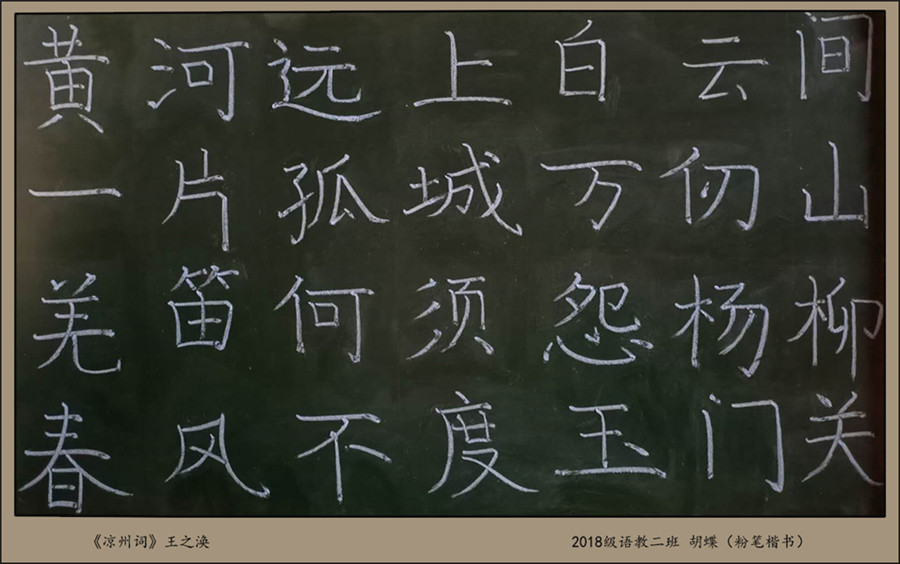 黄河远上白云间
一片孤城万仞山
羌笛何须怨杨柳
春风不度玉门关
《凉州词》王之涣
2018级语教二班 胡蝶（粉笔楷书）